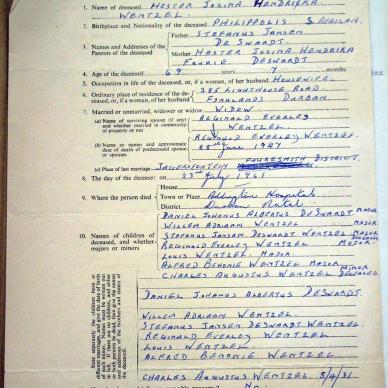 1. Name of deceased HESTER JOSINA HENDRIKA
WENTZEL.
2. Birthplace and Nationality of the deceased PHILIPPOLIS S AFRICAN.
3. Names and Addresses of the Parents of the deceased
Father STEFANUS JANSEN
DE SWARDT.
Mother HESTER JOSINA HENDRIKA
FOURIE DESWARDT
4. Age of the deceased 69 years 7 months
5. Occupation in life of the deceased, or, if a woman, of her husband HOUSEWIFE
6. Ordinary place of residence of the deceased, or, if a woman, of her husband 285 LIGHTHOUSE ROAD.
FYNNLANDS DURBAN
7. Married or unmarried, widower or widow WIDOW
(a) Name of surviving spouse (if any) and whether married in community of property or not REGINALD EVERLEY
WENTZEL
(b) Name or names and approximate date of death of predeceased spouse or spouses REGINALD EVERLEY WENTZEL.
28th June 1947
(c) Place of last marriage JAGERSFONTEIN FOURESMITH DISTRICT.
8. The day of the decease: on 23rd July 1961
9. Where the person died
House
Town or Place Addington Hospital
District. Durban Natal
10. Names of children of deceased, and whether majors or minors
DANIEL JOHANUS ALBERTUS DESWARDT MAJOR
WILLEM ADRIAAN WENTZEL MAJOR
STEFANUS JANSEN DESWARDT WENTZEL MAJOR DECEASED
REGINALD EVERLEY WENTZEL MAJOR
LOUIS WENTZEL. MAJOR
ALFRED BENONIE WENTZEL MAJOR
CHARLES AUGUSTUS WENTZEL MINOR DECEASED
DANIEL JOHANUS ALBERTUS DESWARDT.
WILLEM ADRIAAN WENTZEL.
STEFANUS JANSEN DESWARDT WENTZEL.
REGINALD EVERLEY WENTZEL
LOUIS WENTZEL.
ALFRED BENONIE WENTZEL
CHARLES AUGUSTUS WENTZEL
No